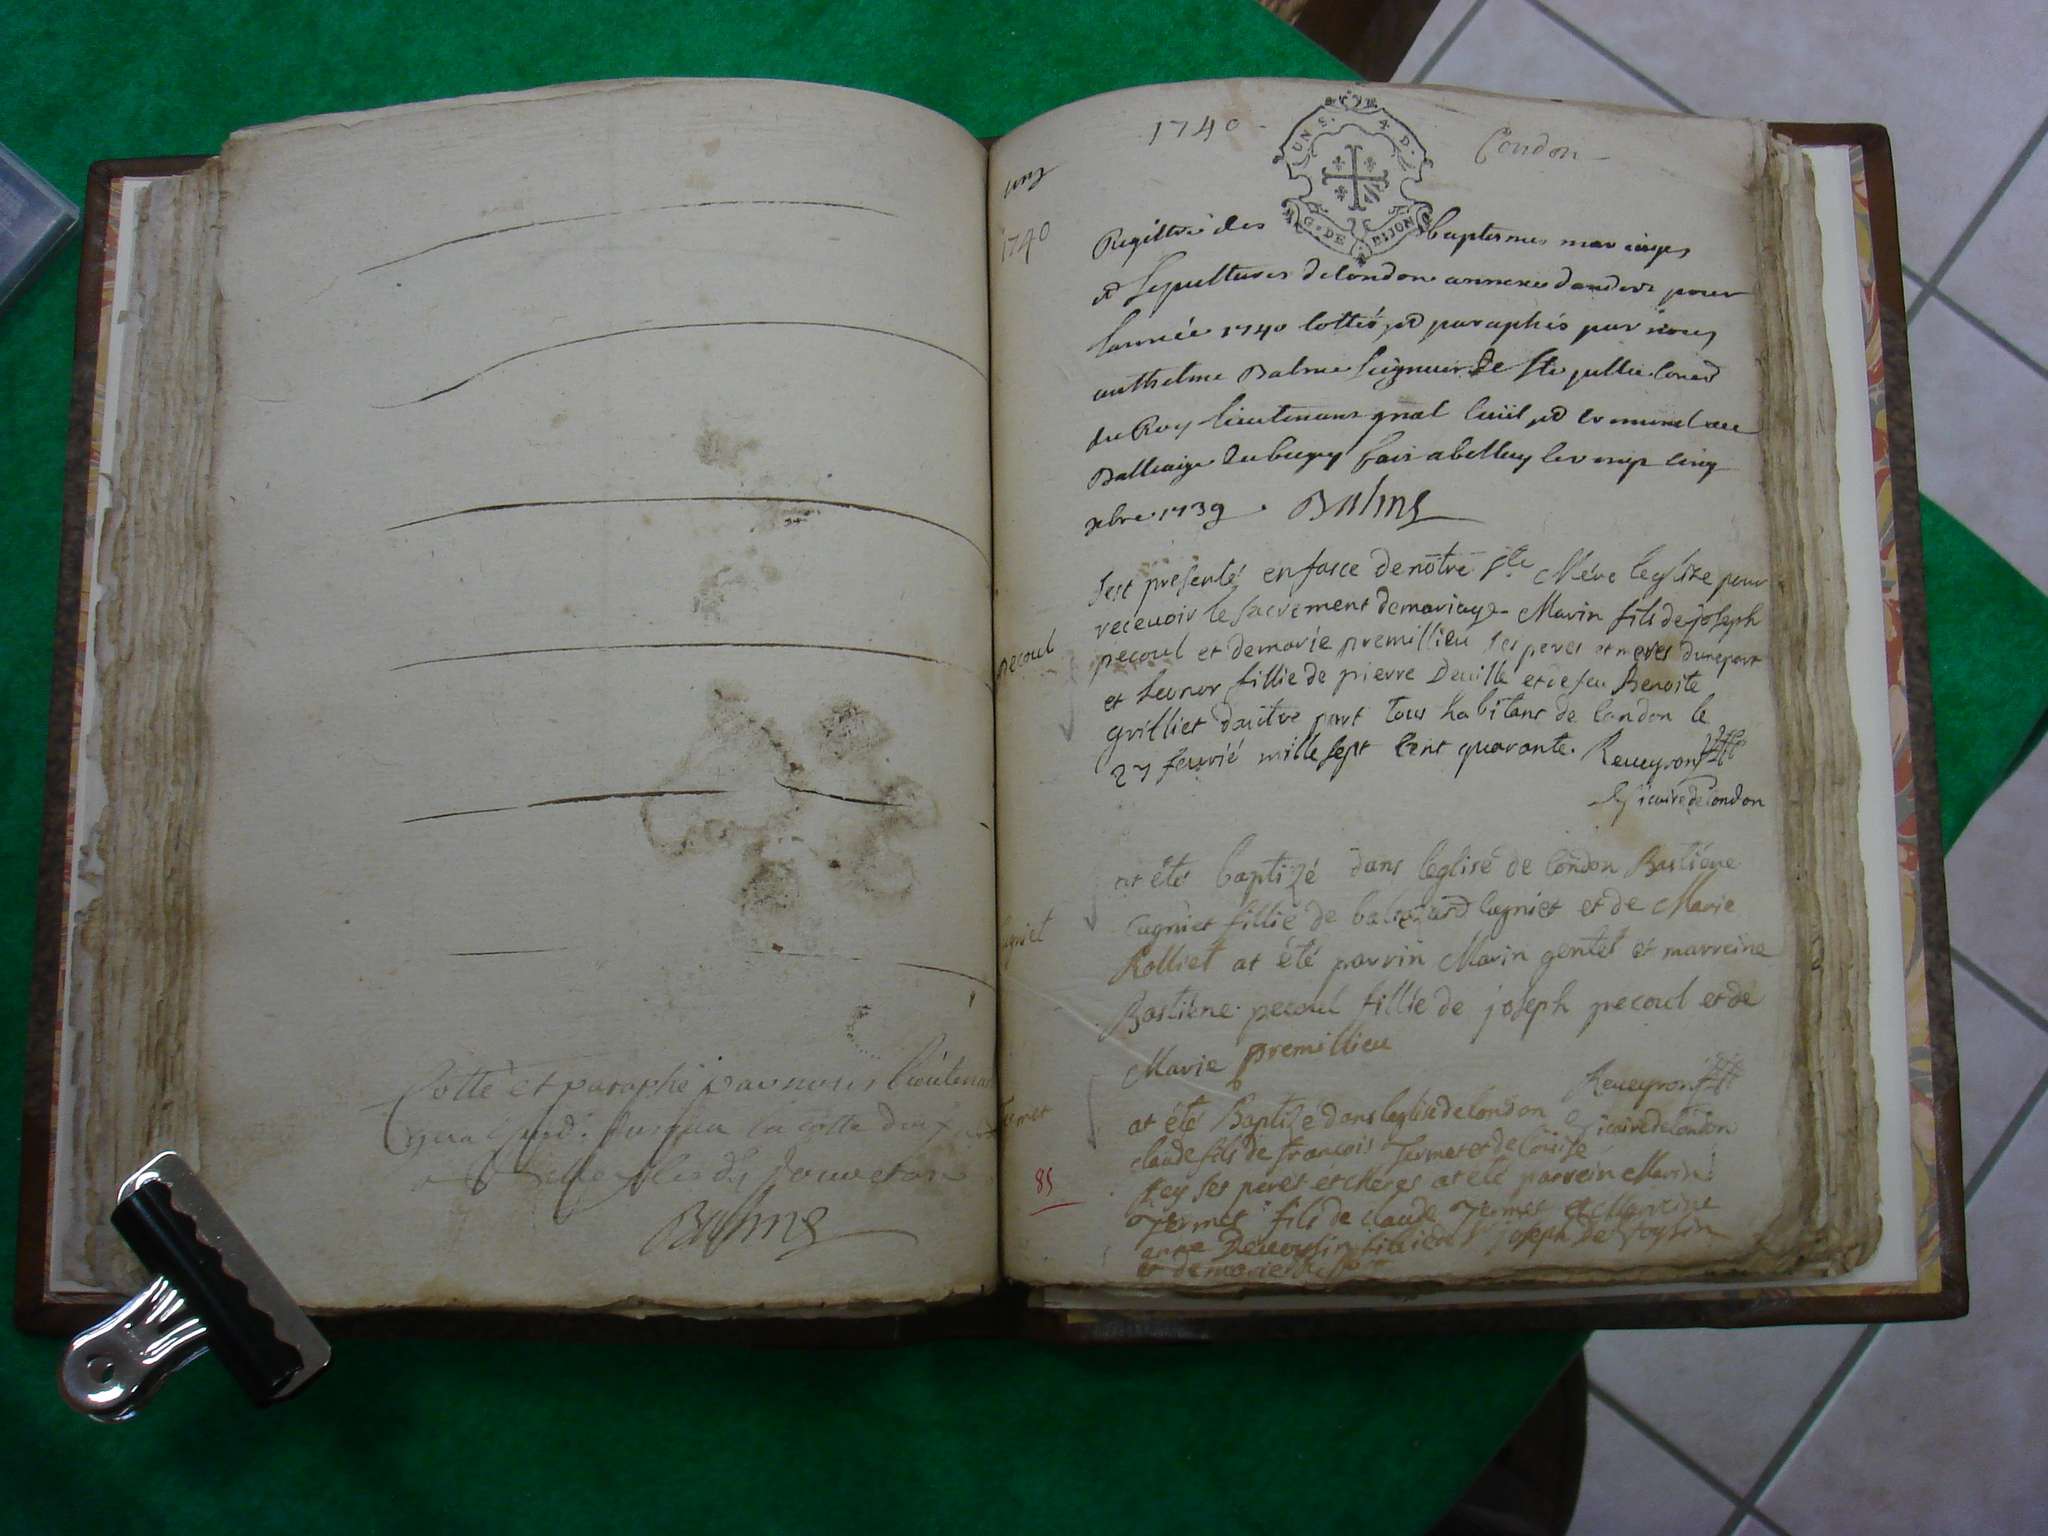 Cotté et paraphé par nous Lieutenant
Balme
1740
Condon
UN S. 4 D.
G. DE DIJON
un
1740
Registre des baptesmes mariages
et sepultures de Condon annexe dandert pour
lannée 1740 cottés et paraphés par nous
anthelme Balme seigneur de Ste jullie Coner
du Roy lieutenant gnal civil et criminel au
Balliaige du bugey fait a belley le cinq
xbre 1739. Balme
pecoul
sest presenté en fasce de nôtre Ste Mére leglize pour
recevoir le sacrement de mariage Marin fils de joseph
pecoul et de marie premillieu ses peres et meres dune part
et leonor fillie de pierre Deville et de feu Benoite
grilliet dautre part tous habitans de Condon le
27 feuvié mille sept cent quarante. Reueyron
Vicaire de Condon
Cugniet
at été baptizé dans leglise de Condon Bastiéne
Cugniet fillie de Cugniet et de Marie
Rolliet at été parrin Marin gentet et marreine
Bastiéne pecoul fillie de joseph pecoul et de
Marie premillieu
Reueyron
Vicaire de Condon
Termet
at été Baptizé dans leglise de Condon
claude fils de francois Termet et de Louise
Rey ses peres et Meres at été parrein Marin
Termet fils de claude Termet et Marreine
anne fillie de Sr joseph
et de marie
85